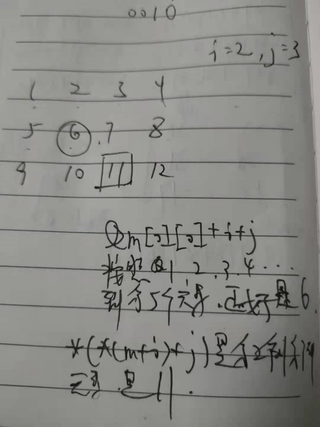 0010
i=2,j=3
1 2 3 4
5 6 7 8
9 10 11 12
&m[0][0]+i+j
按照 1 2.3.4...
到第5个元素.正好是6.
*(*(m+i)+j)是第2列第
元素.是11.